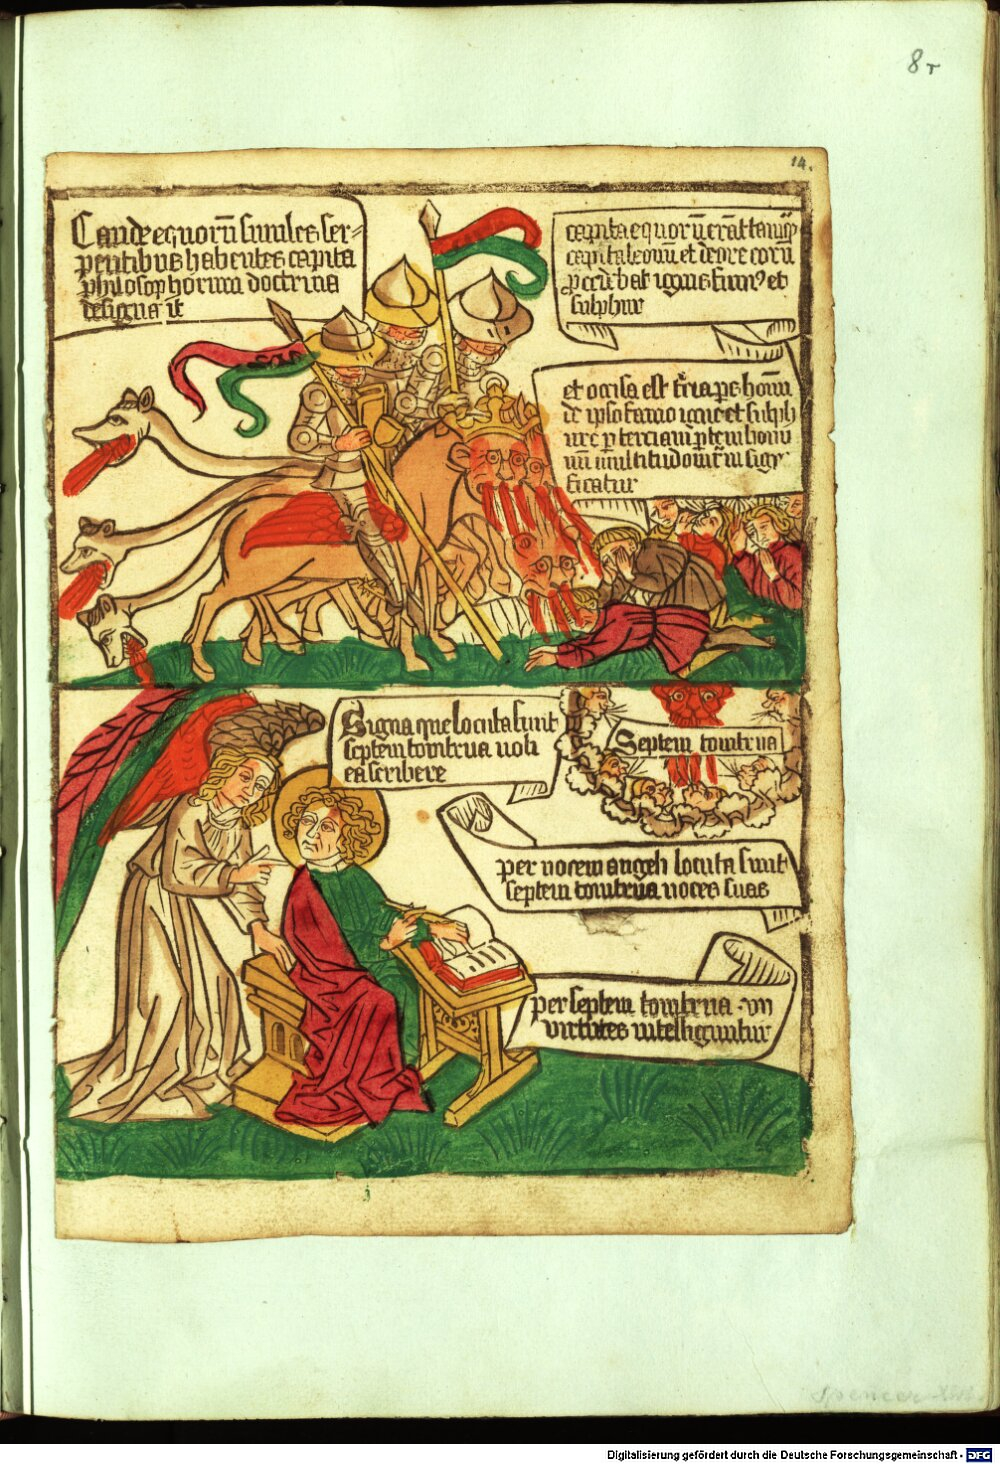 8r
14.
Caude equorū similes ser=
pentibus habentes capita
philosophorum doctrina
designāt
capita equorū erāt tamqͥ
capita leonū et de ore eorū
ꝓcedebat ignis fumꝰ et
sulphur
et occisa est tͥcia ps homͥnū
de ipso fumo igne et sulph
ure ꝑ terciam ꝑtem homi
nū multitudo
ficatur
Signa que locuta sunt
septem tonitrua noli
ea scribere
Septem tonitrua
per vocem angeli locuta sunt
septem tonitrua voces suas
per septem tonitrua · vii
virtutes intelliguntur
Spencer
Digitalisierung gefördert durch die Deutsche Forschungsgemeinschaft - DFG